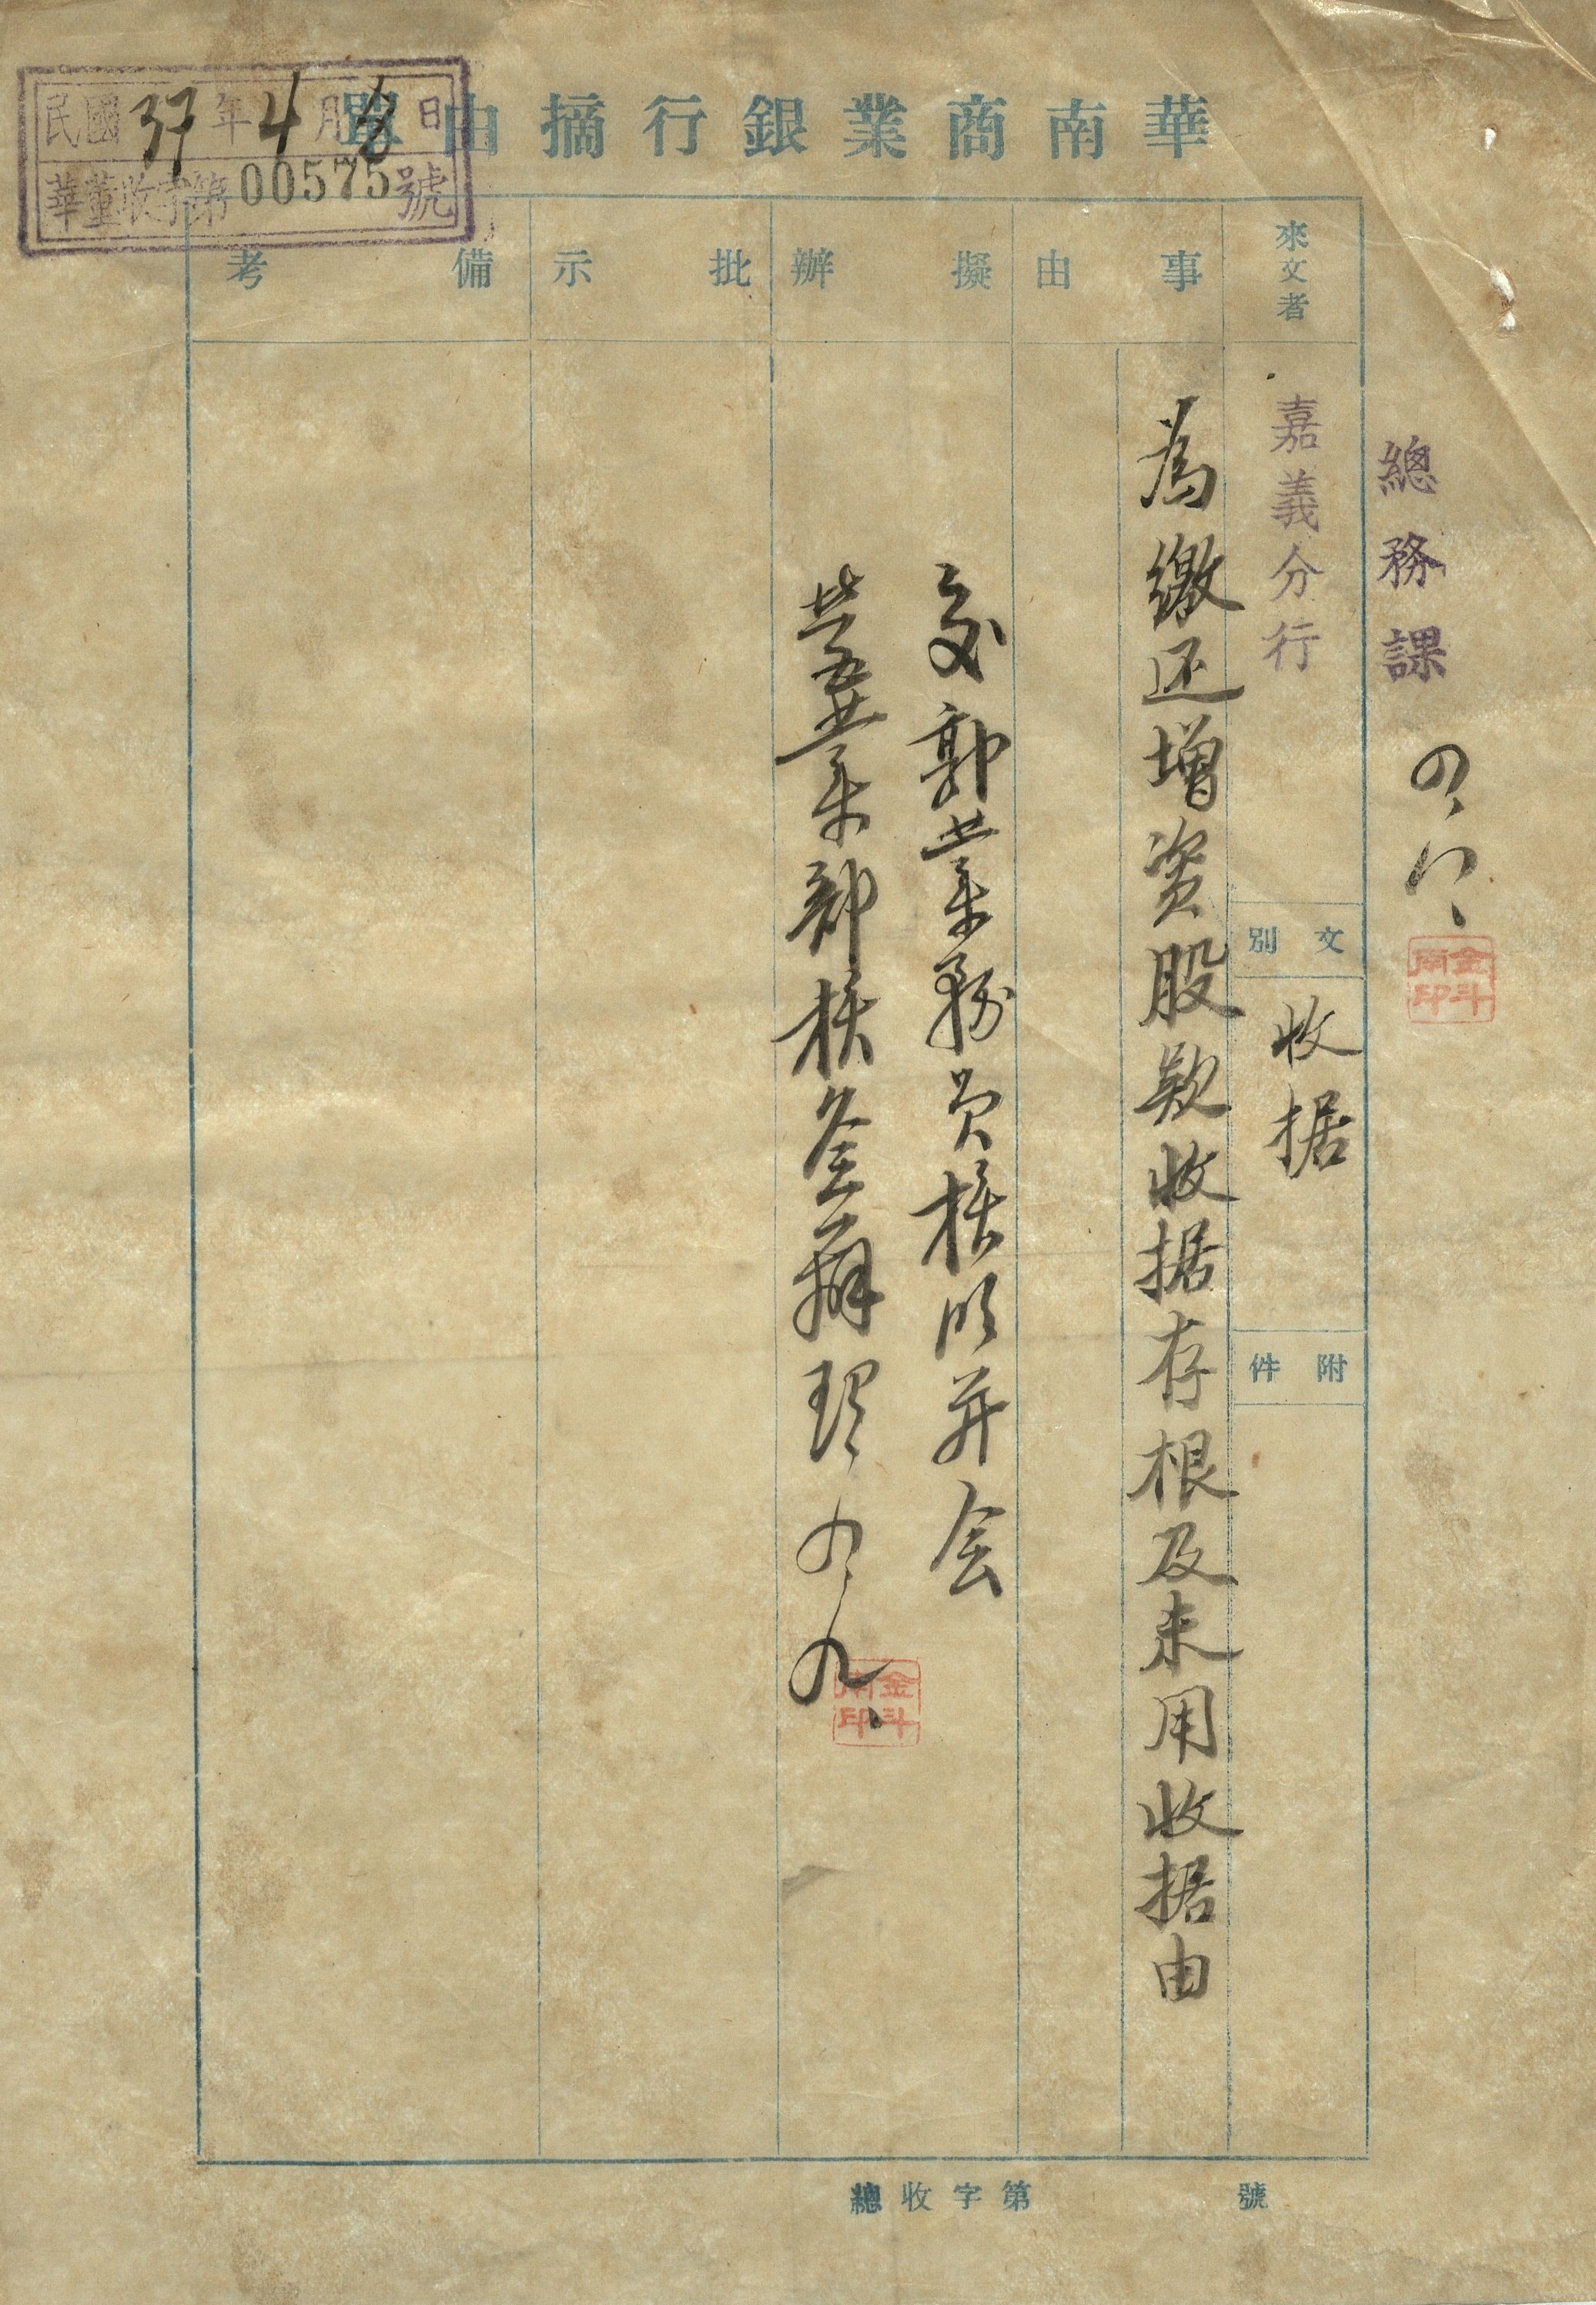 華南商業銀行摘由單
民國37年4月8日
華董收字第00575號
總務課
四、八、
金斗
南印
來文者
嘉義分行
文別
收据
附件
事由
為繳还增資股款收据存根及未用收据由
擬辦
交郭業務員核收并会
营業部核簽辦理
四、九、
金斗
南印
批示
備考
總收字第 號